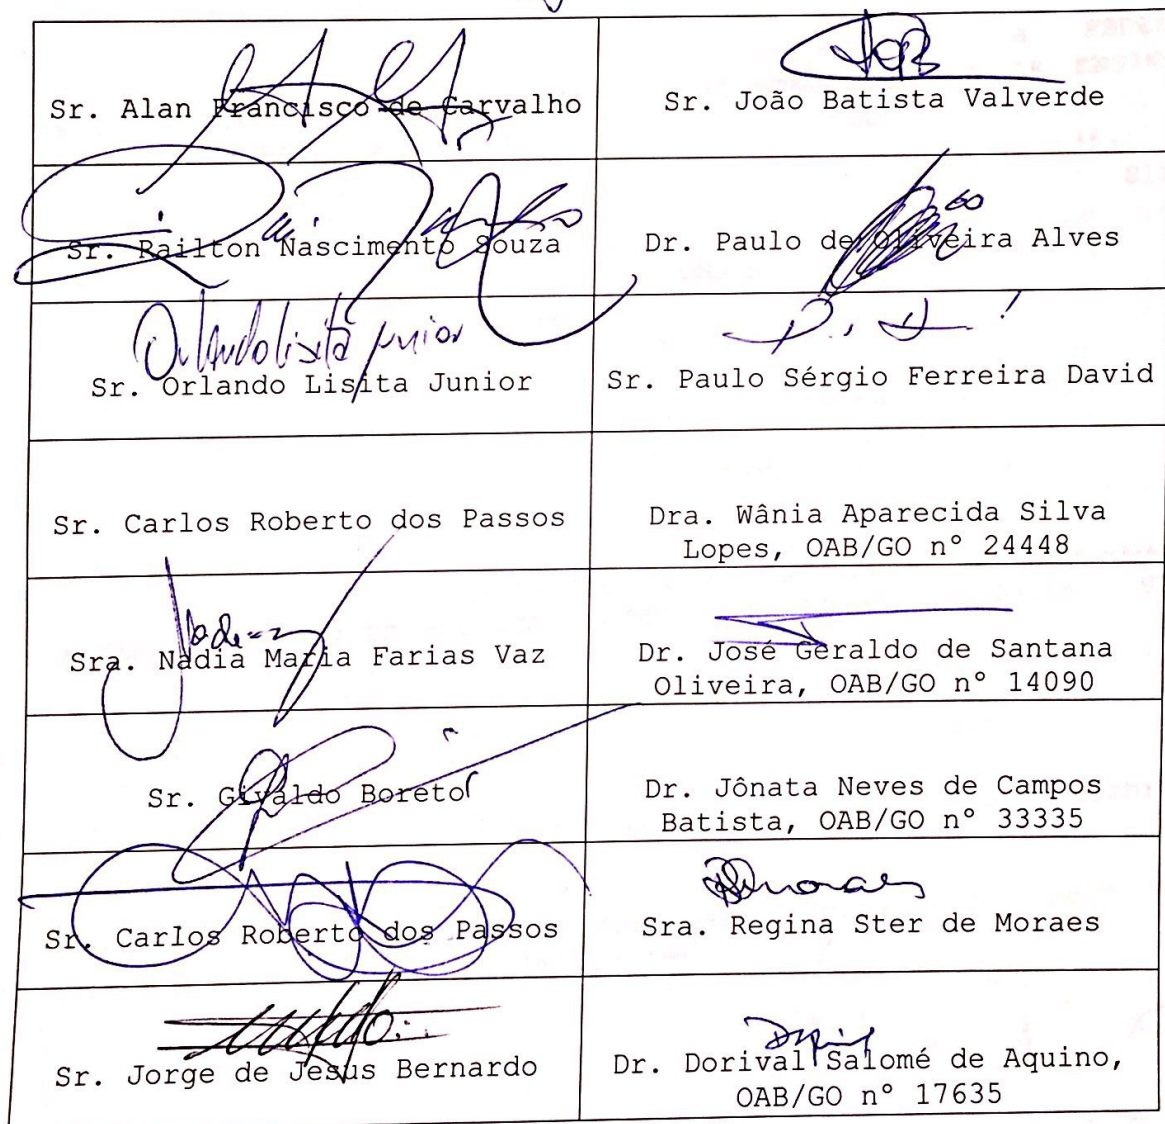 Sr. Alan Francisco de Carvalho
Sr. João Batista Valverde
Sr. Railton Nascimento Souza
Dr. Paulo de Oliveira Alves
Orlando Lisita Junior
Sr. Orlando Lisita Junior
Sr. Paulo Sérgio Ferreira David
Sr. Carlos Roberto dos Passos
Dra. Wânia Aparecida Silva
Lopes, OAB/GO nº 24448
Sra. Nadia Maria Farias Vaz
Dr. José Geraldo de Santana
Oliveira, OAB/GO nº 14090
Sr. Givaldo Boreto
Dr. Jônata Neves de Campos
Batista, OAB/GO nº 33335
Sr. Carlos Roberto dos Passos
Sra. Regina Ster de Moraes
Sr. Jorge de Jesus Bernardo
Dr. Dorival Salomé de Aquino,
OAB/GO nº 17635